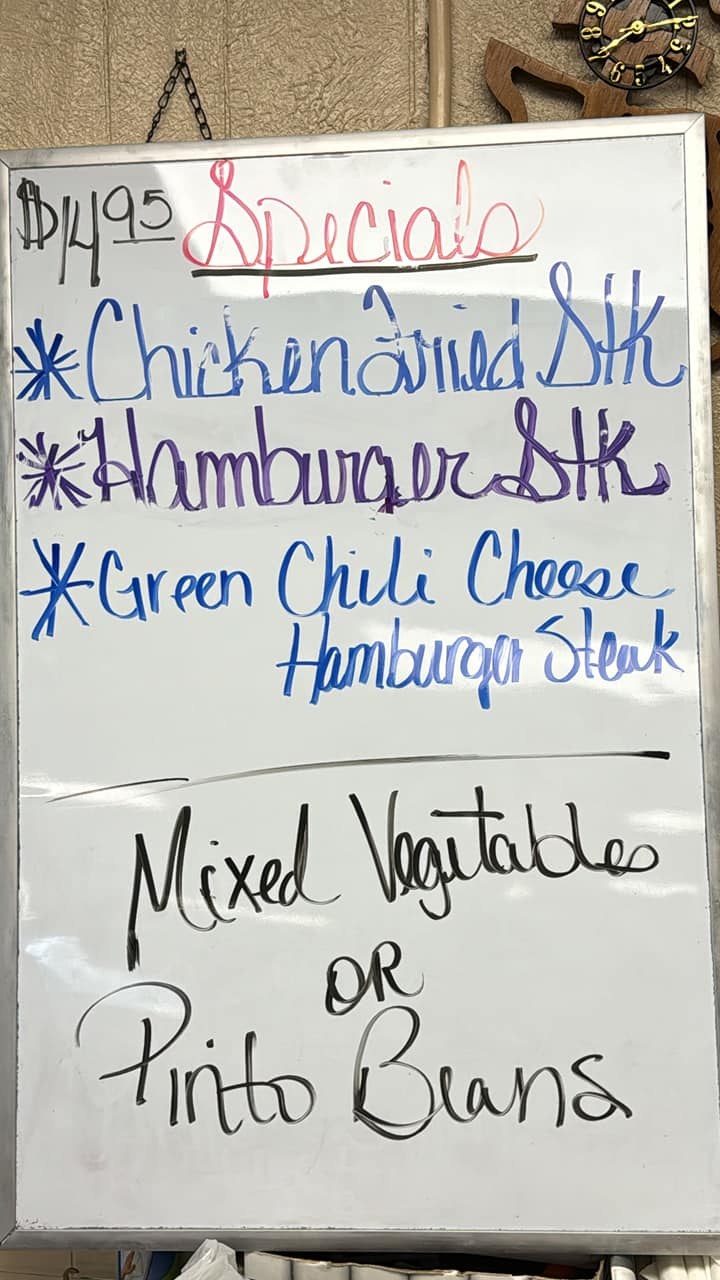 $14.95 Specials
*Chicken Fried Stk
*Hamburger Stk
*Green Chili Cheese
Hamburger Steak
Mixed Vegetables
OR
Pinto Beans